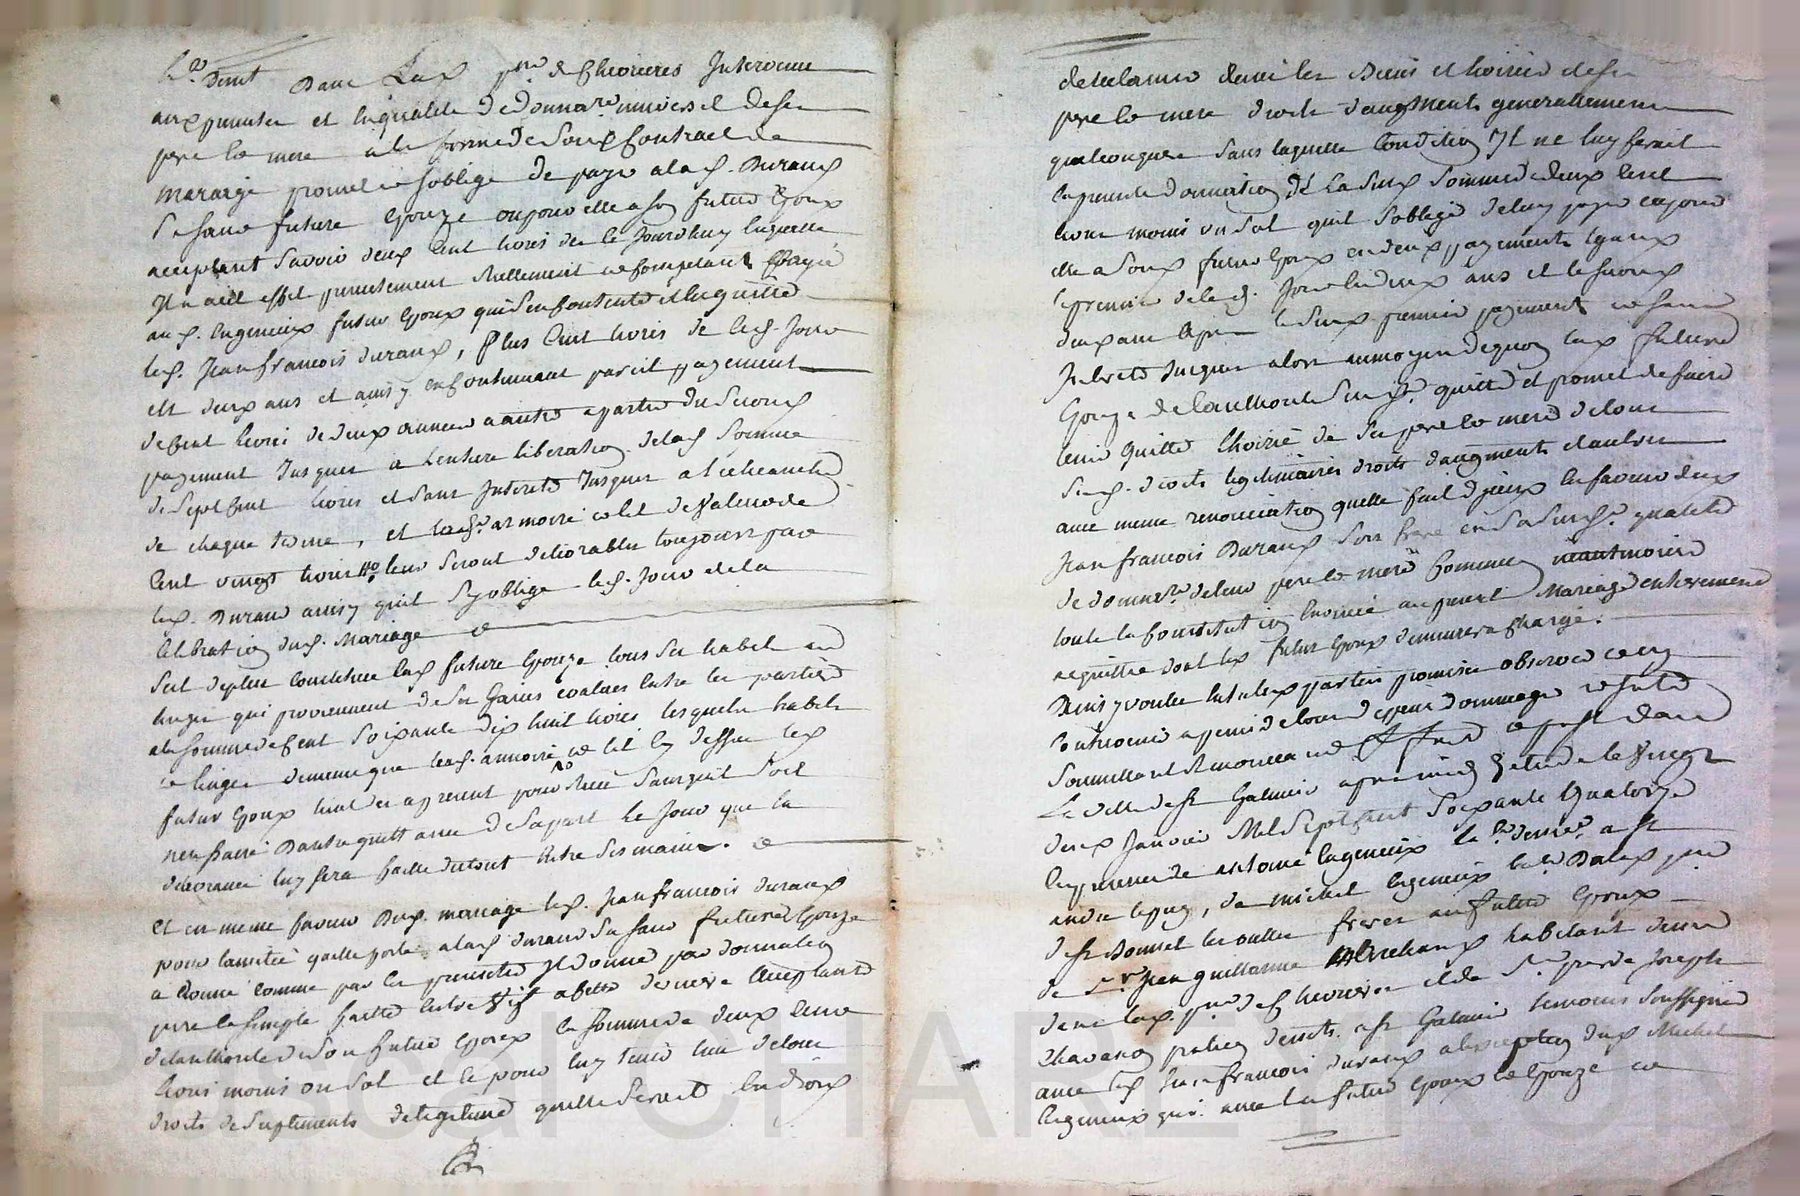 Dans lad. prse de Chevrieres Intervenue
aux presentes et En qualité de donnare universel de ses
pere & mere a la forme de son Contract de
mariage promet & soblige de payer a lad. Durand
Sa sœur future Epouze ou pour elle a son futur Epoux
acceptant Savoir deux Cent livres des Ce Jourdhuy laquelle
Il a en effet presentement Reellement & Comptant payé
aud. Lagenieux futur Epoux qui s'en Contente & En quitte
led. Jean francois durand, Plus Cent livres de led. Jour
en deux ans et ainsy en Continuant pareil payement
de Cent livres de deux années a autre a partir du second
payement Jusques a Lentiere liberation de lad. Somme
de Sept Cent livres et Sans Interets Jusques a l'echeance
de chaque terme, et led. armoire & lit de Valleur de
Cent vingt livres leur seront delivrables toujours par
led. Durand ainsy quil s'y oblige led. Jour de la
Celebration dud. Mariage &
Se constitue lad. future Epouze tous ses habits et
linges qui proviennent de ses Gains évalués Entre les parties
a la somme de Cent Soixante dix huit livres lesquels habits
& linges dememe que lesd. armoire & lit Cy dessus led.
futur Epoux tient des a present pour Reçu Sans quil soit
necessaire Dautre quittance de sa part le Jour que la
delivrance luy sera faitte du tout Entre ses mains. &
Et en meme faveur Dud. mariage led. Jean francois durand
pour lamitié quelle porte a lad. durand Sa sœur future Epouze
a donné comme par les presentes Il donne par donnation
pure & simple faitte Entre Vifs a elle de mere acceptante
de lauthorité de son futur Epoux la Somme de deux Cent
livres moins un Sol et Ce pour luy tenir lieu de tous
droits de Suplements de legitime quelle seroit En droit
de reclamer dans les Biens et hoiries de ses
pere & mere droits daugments generallement
quelconques sans laquelle Condition Il ne luy feroit
la presente donnation de La susd. Somme de deux Cent
livres moins un Sol quil soblige de luy payer ou pour
elle a Sond. futur Epoux en deux payements Egaux
le premier de led. Jour En deux ans et le second
deux ans apres le susd. premier payement & Sans
Interets Jusques alors au moyen de quoy lad. future
Epouze de lauthorité Susd. quitte et promet de faire
tenir Quitte L'hoirie de Ses pere & mere de tous
Susd. droits legitimaires droits daugments & autres
avec meme renonciation quelle fait d'Iceux En faveur dud.
Jean francois Durand Son frere en Sa Susd. qualité
de donnare de leur pere & mere Commune neantmoins
toute la Constitution Enoncée au present Mariage entierement
acquittée dont led. futur Epoux demeurera Chargé.
Ainsy voulu Entre les parties promis observer &
Contrevenir a peine de tous depens dommages & interets
Soumettant & renonceant &ca Fait & passé dans
La ville de St Galmier apres midy Etude le Vingt
deux Janvier Mil Sept Cent Soixante Quatorze
En presence de antoine Lagenieux labr demt a St
andre lepuy, de michel lagenieux labr Dans prse
de St Bonnet les oulles freres au futur Epoux
de Sr Jean guillaume Marchand habitant demt
dans lad. prse de Chevrieres et de Sr pierre Joseph
Chavanon praticien demt a St Galmier temoins Soussignés
avec led. Jean francois durand a l'exception dud. Michel
lagenieux qui avec les futurs Epoux & Epouze &
Pascal CHAREYRON